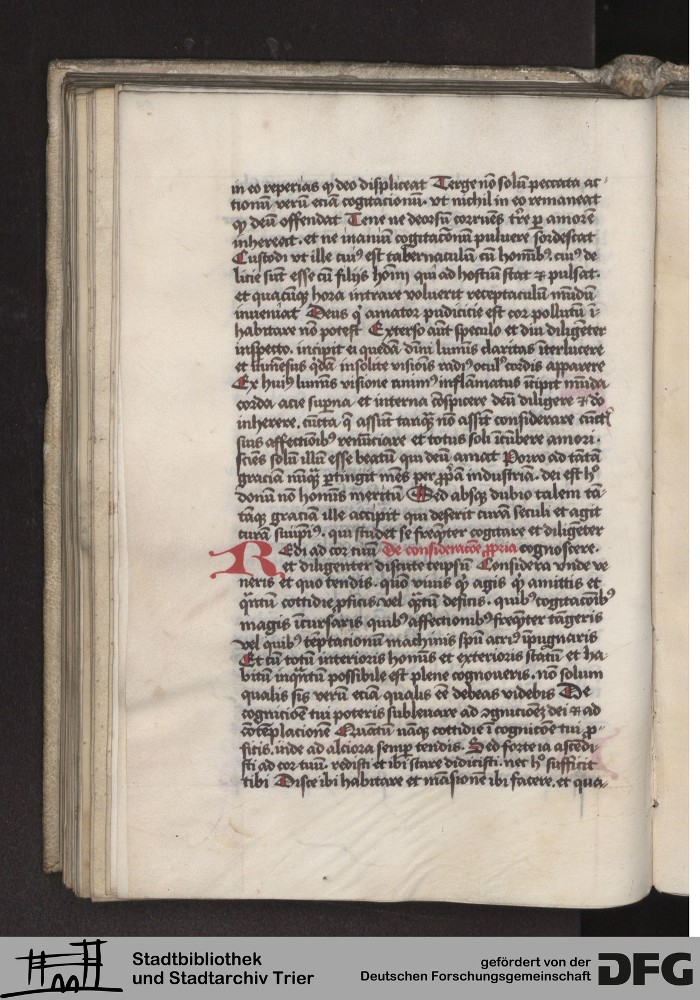 in eo reperias qͥ deo displiceat Terge nō solū peccata ac-
tionū verū eciā cogitacionū. vt nichil in eo remaneat
qͥ deū offendat Tene ne deorsū corruēs tr̄e ꝑ amorē
inhereat. et ne inaniū cogitacōnū puluere sordescat
Custodi vt ille cuiꝰ est tabernaculū cū homībꝰ cuiꝰ de
licie sūt esse cū filijs homī qui ad hostiū stat ⁊ pulsat.
et quacūqꝫ hora intrare voluerit receptaculū mūdū
inueniat Deus qͥ amator pudicicie est cor pollutū ī-
habitare nō potest Exterso aūt speculo et diu diligēter
inspecto. incipit ei quedā diuini lumīs claritas īterlucere
et īmēsus qͥdā insolite visiōis radiꝰ oculꝰ cordis apparere
Ex huiꝰ lumīs visione animꝰ inflāmatus īcipit mūda
corda acie suꝑna et interna cōspicere deū diligere ⁊ dō
inherere. cūcta q̄ assūt tanqͣꝫ nō assīt considerare cūctꝭ
suis affectioībꝰ renūciare et totus soli īcūbere amori.
sciēs solū illū esse beatū qui deū amat Porro ad tātā
graciā nūqͣꝫ ꝑtingit mēs per ꝓpͥā industriā. dei est hͦ
donū nō homīs meritū Sed absqꝫ dubio talem tā-
tāqꝫ graciā ille accipit qui deserit curā seculi et agit
curā suiipīꝰ. qui studet se freqͥter cogitare et diligēter
REdi ad cor tuū De consideracōe ꝓpria cognoscere.
et diligenter discute teipsū Considera vnde ve
neris et quo tendis. quō viuis qͥ agis qͥ amittis et
qͣntū cottidie ꝓficis. vel qͣntū deficis. quibꝰ cogitacōibꝰ
magis īcursaris quibꝰ affectionibꝰ freqͥter tāgeris
vel quibꝰ tēptacionū machinis spūs acriꝰ īpugnaris
Et cū totū interioris homīs et exterioris statū et ha-
bitū inqͣntū possibile est plene cognoueris. nō solum
qualis sis verū eciā qualis eē debeas videbis De
cognicioē tui poteris subleuare ad ꝯgnicioēꝫ dei ⁊ ad
cōtēplacionē Quantū nāqꝫ cottidie ī cognicōe tui ꝓ-
ficis. inde ad alciora semꝑ tendis. Sed forte iā ascēdi-
sti ad cor tuū. redisti et ibi stare didicisti. nec hͦ sufficit
tibi Disce ibi habitare et māsionē ibi facere. et qua-
Stadtbibliothek
und Stadtarchiv Trier
gefördert von der
Deutschen Forschungsgemeinschaft
DFG